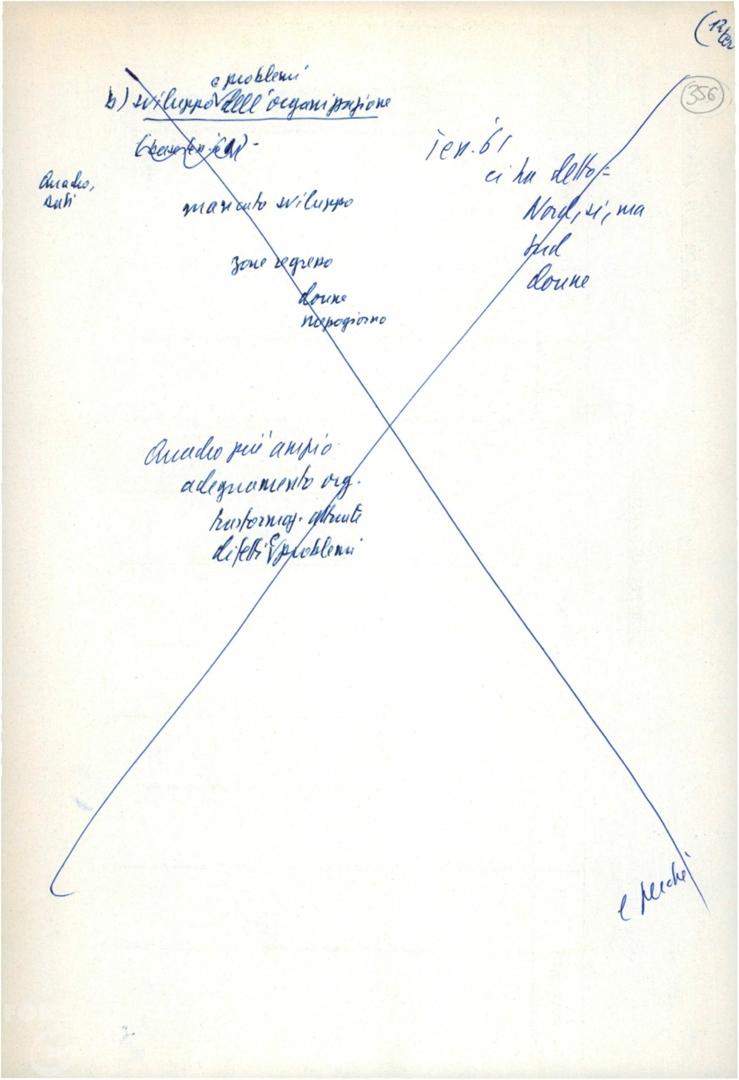 (12 ter
356
e problemi
b) sviluppo dell'organizzazione
Quadro,
dati
mancato sviluppo
zone regresso
donne
mezzogiorno
Ten. 61
ci ha detto =
Nord, sì, ma
Sud
donne
Quadro più ampio
adeguamento org.
trasformaz. attuate
difetti e problemi
e perché